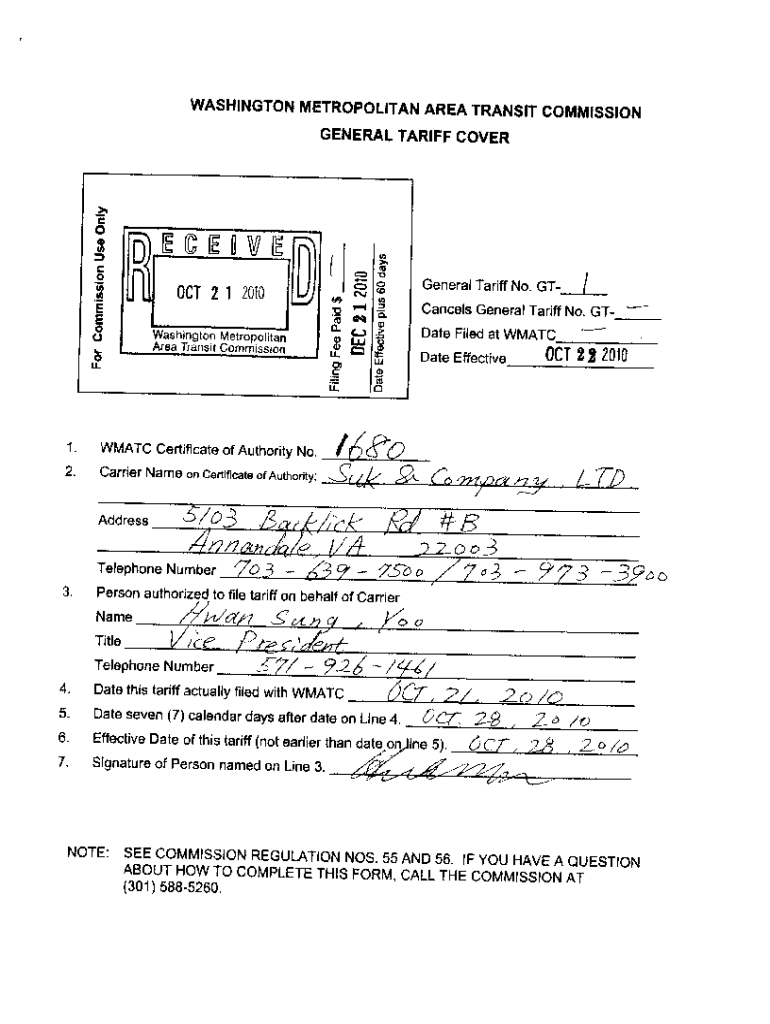 WASHINGTON METROPOLITAN AREA TRANSIT COMMISSION
GENERAL TARIFF COVER
For Commission Use Only
RECEIVED
OCT 21 2010
Washington Metropolitan
Area Transit Commission
Filing Fee Paid $
DEC 21 2010
Date Effective plus 60 days
General Tariff No. GT- 1
Cancels General Tariff No. GT- —
Date Filed at WMATC —
Date Effective OCT 22 2010
1. WMATC Certificate of Authority No. 1680
2. Carrier Name on Certificate of Authority: Suk & Company, LTD
Address 5103 Backlick Rd #B
Annandale, VA 22003
Telephone Number 703-639-7500 / 703-973-3900
3. Person authorized to file tariff on behalf of Carrier
Name Hwan Sung, Yoo
Title Vice President
Telephone Number 571-926-1461
4. Date this tariff actually filed with WMATC OCT. 21. 2010
5. Date seven (7) calendar days after date on Line 4. OCT. 28, 2010
6. Effective Date of this tariff (not earlier than date on line 5). OCT. 28, 2010
7. Signature of Person named on Line 3.
NOTE: SEE COMMISSION REGULATION NOS. 55 AND 56. IF YOU HAVE A QUESTION
ABOUT HOW TO COMPLETE THIS FORM, CALL THE COMMISSION AT
(301) 588-5260.